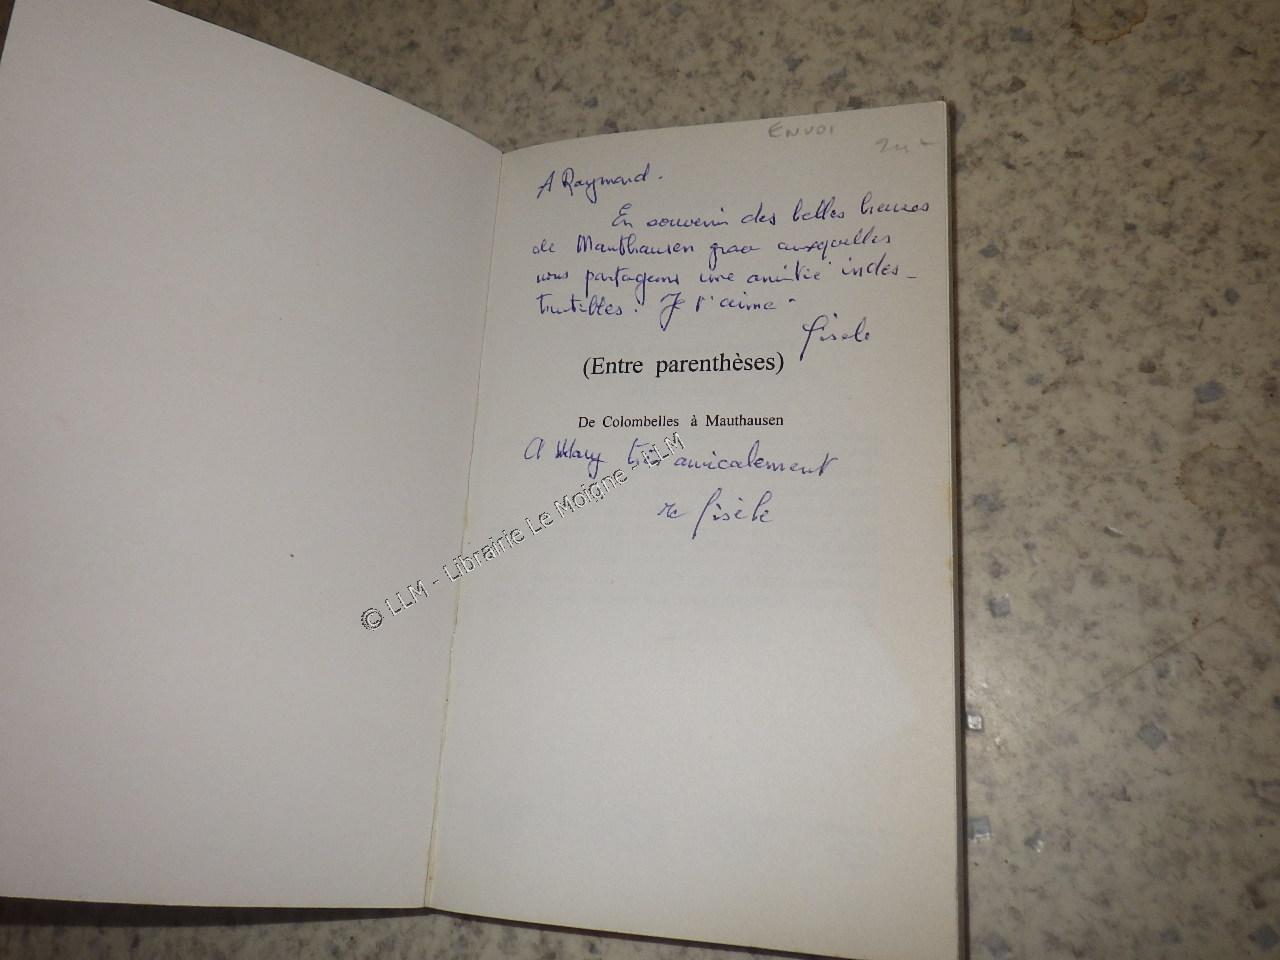 ENVOI
A Raymond.
En souvenir des belles heures
de Mauthausen grace auxquelles
nous partageons une amitié indes-
tructibles. Je t'aime.
Gisèle
(Entre parenthèses)
De Colombelles à Mauthausen
A Mary très amicalement
Gisèle
© LLM - Librairie Le Moigne - LLM